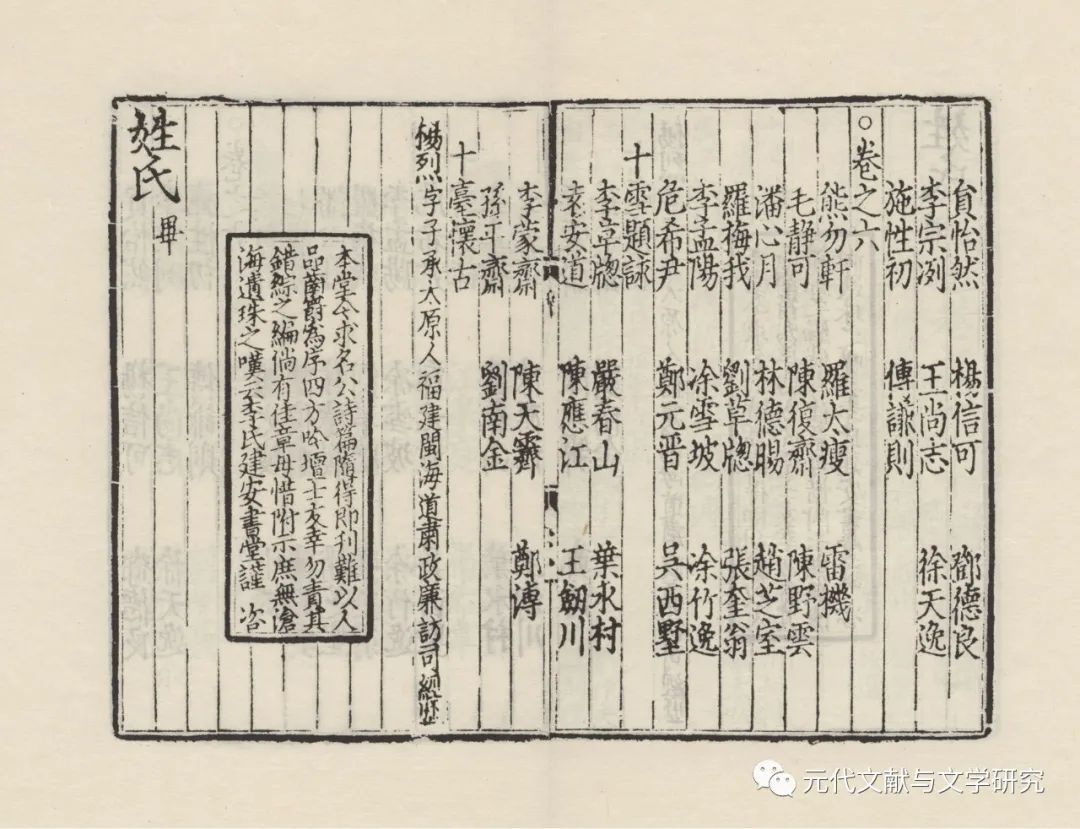 貟怡然 楊信可 鄧德良
李宗冽 王尚志 徐天逸
施性初 傅謙則
○卷之六
熊勿軒 羅太瘦 雷機
毛靜可 陳復齋 陳野雲
潘心月 林德暘 趙芝室
羅梅我 劉草牕 張奎翁
李孟陽 凃雪坡 凃竹逸
危希尹 鄭元晋 吳西墅
十雪題詠
李草牕 嚴春山 葉水村
袁安道 陳應江 王劒川
李蒙齋 陳天霽 鄭漙
孫平齋 劉南金
十臺懷古
楊烈字子承太原人福建閩海道肅政廉訪司經歷
本堂今求名公詩篇隨得即刊難以人
品齒爵為序四方吟壇士友幸勿責其
錯綜之編倘有佳章毋惜附示庶無滄
海遺珠之嘆云李氏建安書堂謹咨
姓氏畢
元代文献与文学研究